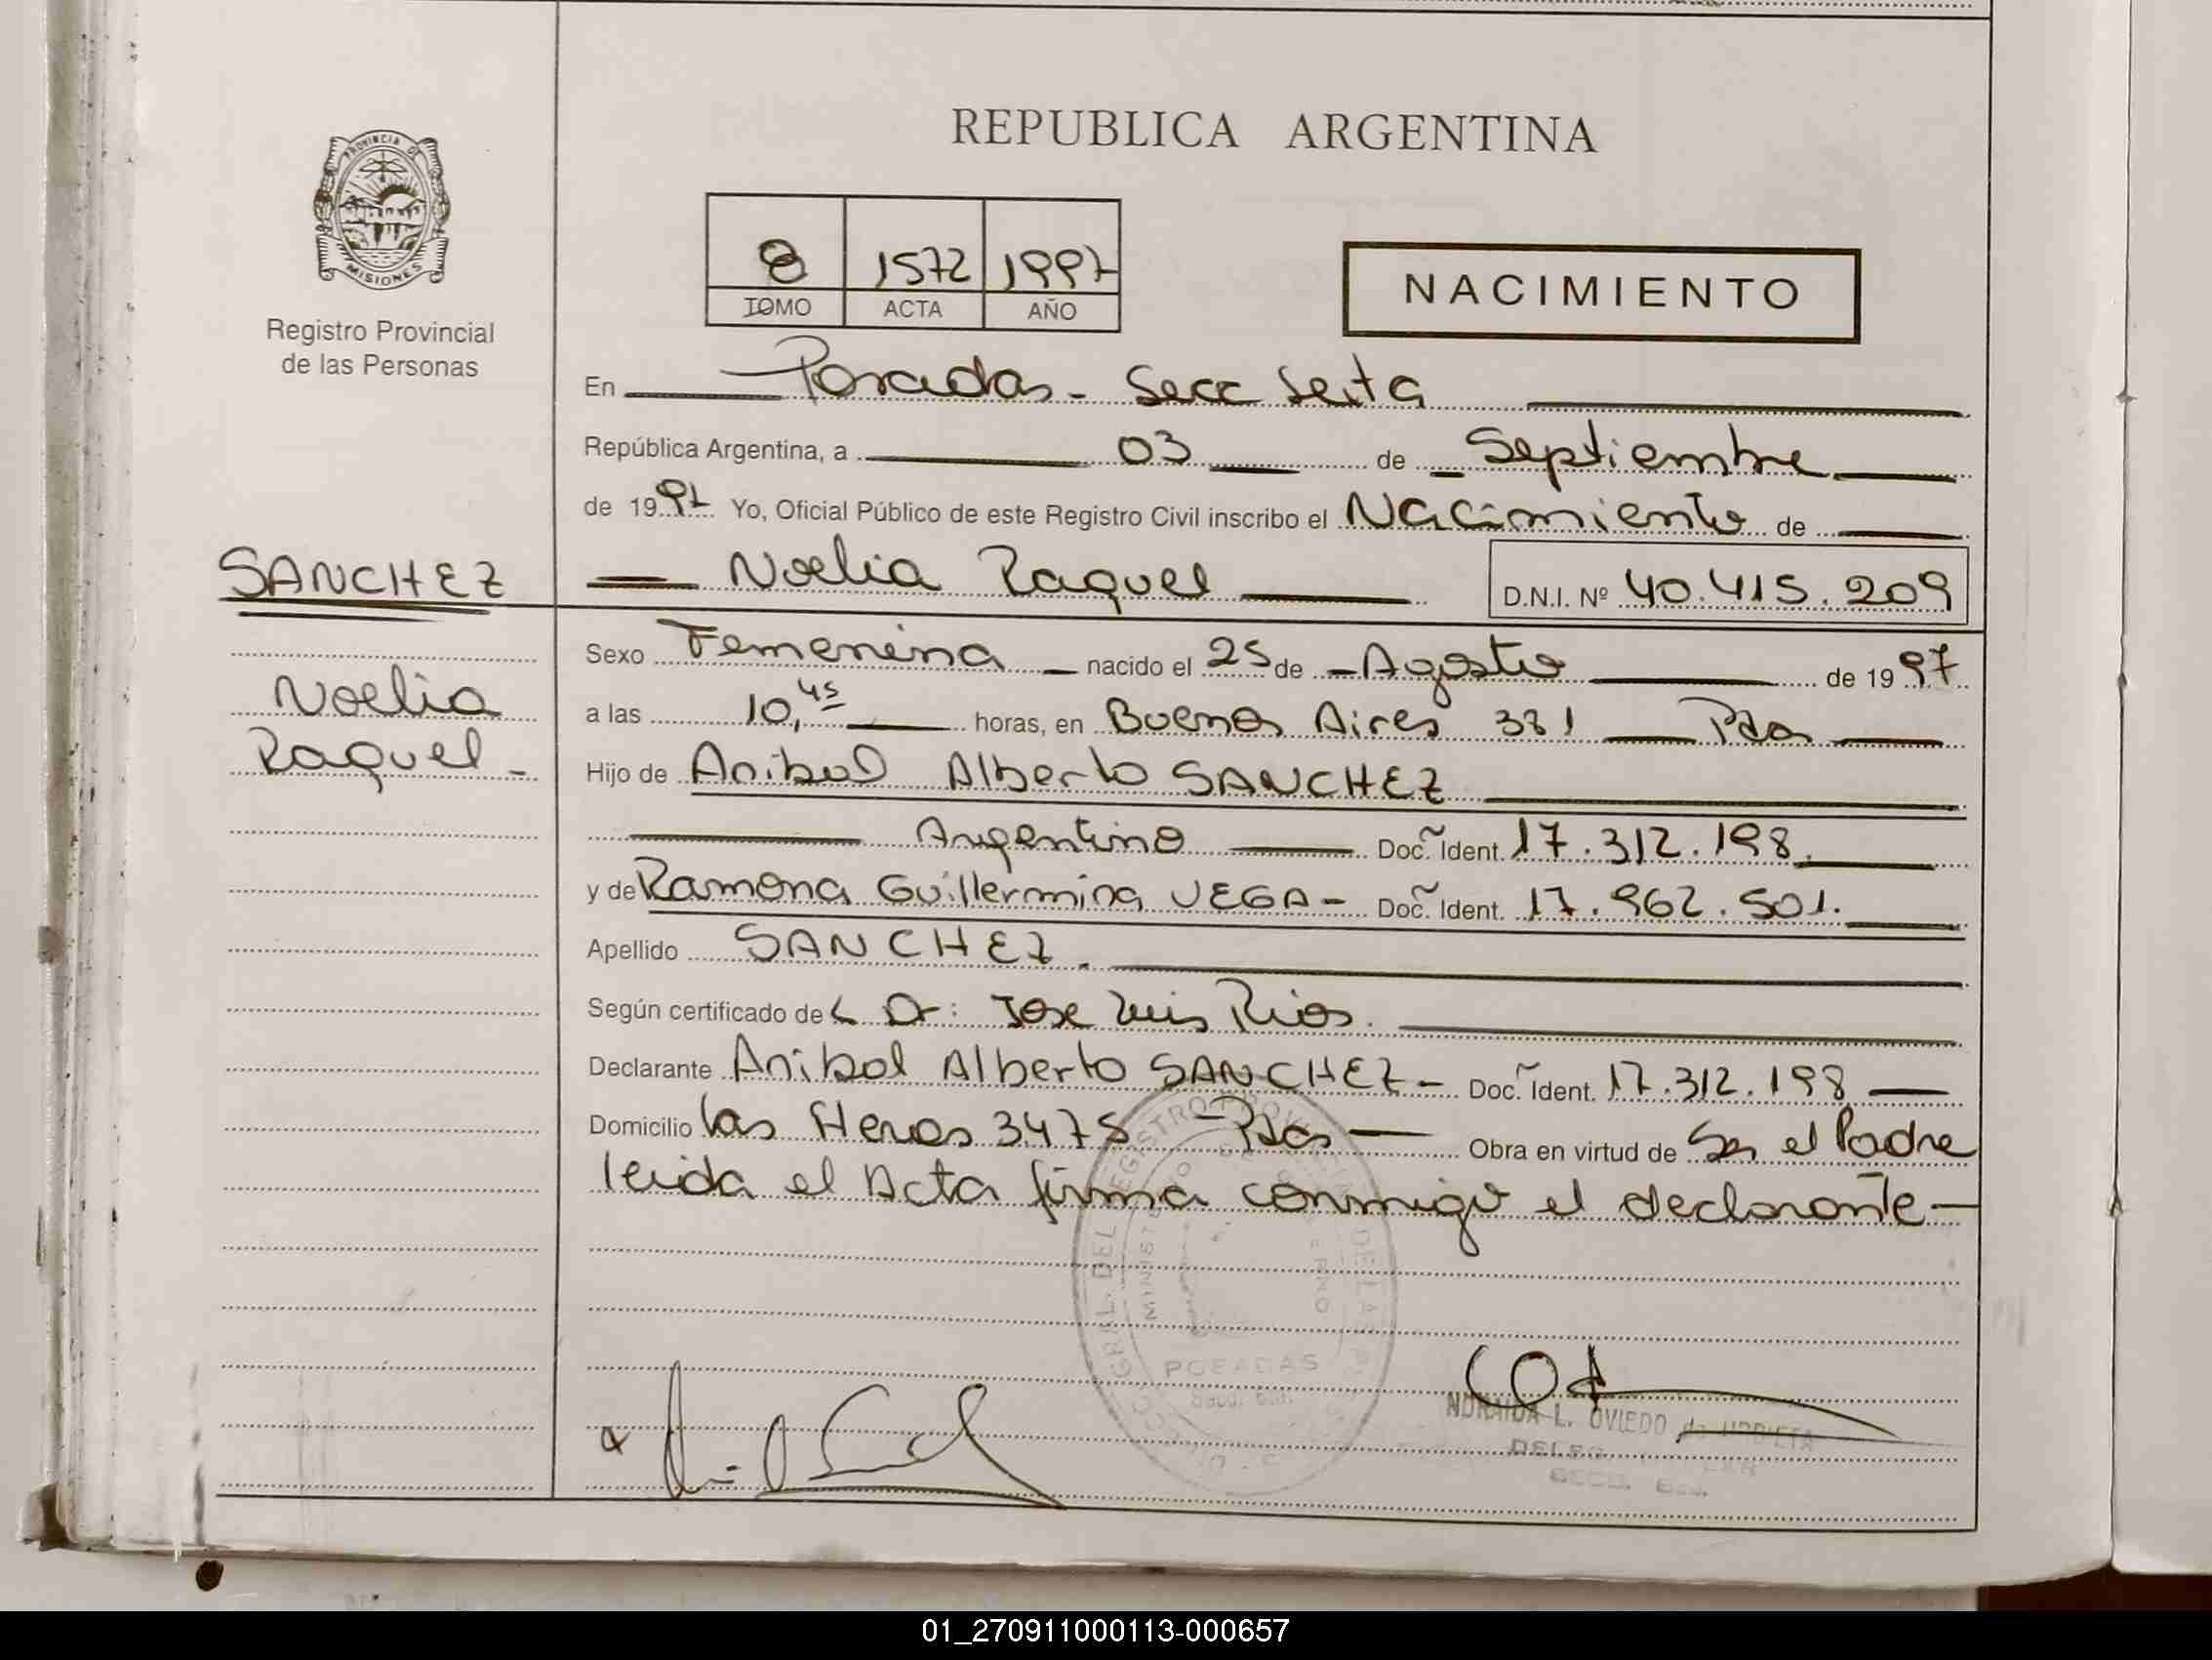 REPUBLICA ARGENTINA
PROVINCIA DE
MISIONES
Registro Provincial
de las Personas
8 1572 1997
TOMO ACTA AÑO
NACIMIENTO
En Posadas - Secc Sexta
República Argentina, a 03 de Septiembre
de 1997 Yo, Oficial Público de este Registro Civil inscribo el Nacimiento de
SANCHEZ
Noelia Raquel D.N.I. Nº 40.415.209
Noelia
Raquel -
Sexo Femenina - nacido el 25 de - Agosto de 1997
a las 10,45 horas, en Buenos Aires 381 Pdas
Hijo de Anibal Alberto SANCHEZ
Argentino Doc. Ident. 17.312.198.
y de Ramona Guillermina VEGA - Doc. Ident. 17.962.501.
Apellido SANCHEZ.
Según certificado del Dr: Jose Luis Rios.
Declarante Anibal Alberto SANCHEZ - Doc. Ident. 17.312.198
Domicilio las Heras 3475 - Pdas Obra en virtud de Ser el Padre
leida el Acta firma conmigo el declarante -
POSADAS
NORAIDA L. OVIEDO de URBIETA
01_270911000113-000657